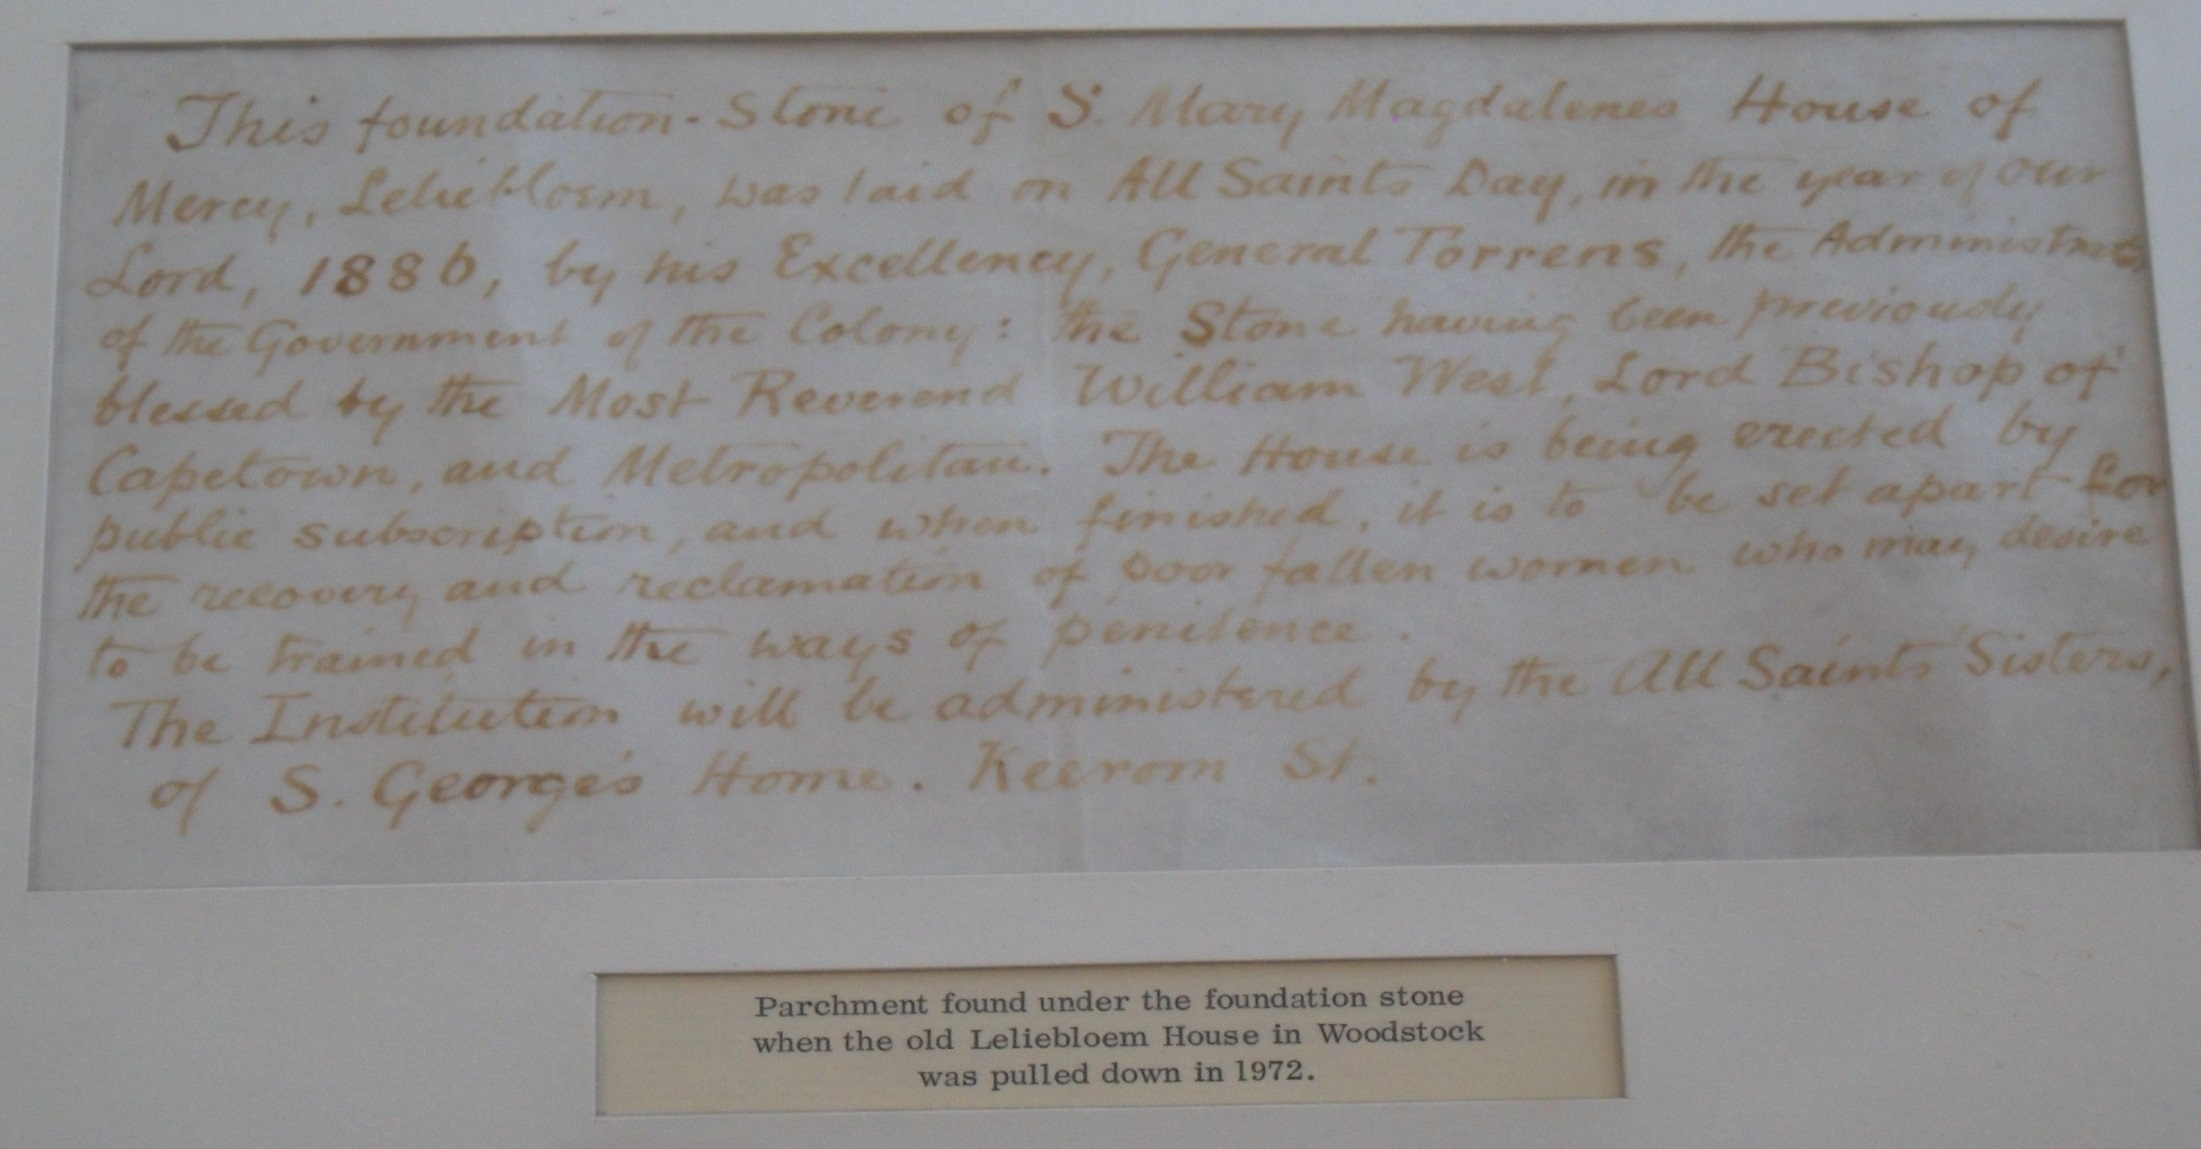 This foundation-Stone of S. Mary Magdalenes House of
Mercy, Leliebloem, was laid on All Saints Day, in the year of our
Lord, 1886, by his Excellency, General Torrens, the Administrator
of the Government of the Colony: the Stone having been previously
blessed by the Most Reverend William West, Lord Bishop of
Capetown, and Metropolitan. The House is being erected by
public subscription, and when finished, it is to be set apart for
the recovery and reclamation of poor fallen women who may desire
to be trained in the ways of penitence.
The Institution will be administered by the All Saints' Sisters,
of S. George's Home. Keerom St.
Parchment found under the foundation stone
when the old Leliebloem House in Woodstock
was pulled down in 1972.